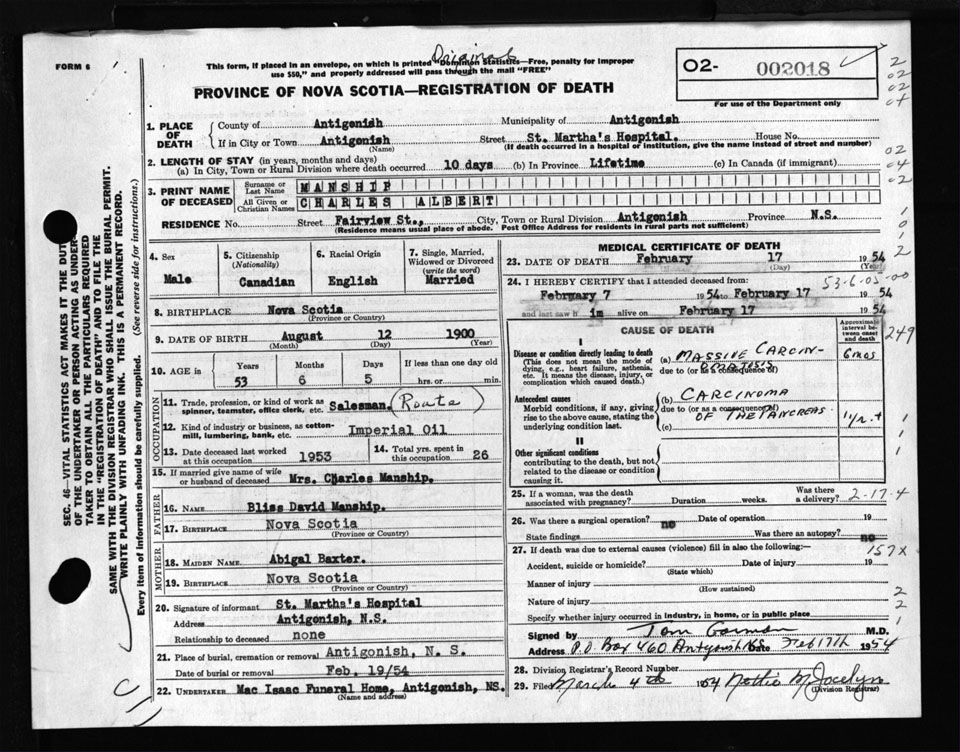 FORM 6
Original
This form, if placed in an envelope, on which is printed "Dominion Statistics—Free, penalty for improper
use $50," and properly addressed will pass through the mail "FREE"
PROVINCE OF NOVA SCOTIA—REGISTRATION OF DEATH
O2- 002018
For use of the Department only
2
02
02
04
02
04
02
1. PLACE OF DEATH
County of Antigonish Municipality of Antigonish
If in City or Town Antigonish Street St. Martha's Hospital. House No.
(Name) (If death occurred in a hospital or institution, give the name instead of street and number)
2. LENGTH OF STAY (in years, months and days)
(a) In City, Town or Rural Division where death occurred 10 days (b) In Province Lifetime (c) In Canada (if immigrant)
3. PRINT NAME OF DECEASED
Surname or Last Name MANSHIP
All Given or Christian Names CHARLES ALBERT
RESIDENCE No. Street Fairview St., City, Town or Rural Division Antigonish Province N.S.
(Residence means usual place of abode. Post Office Address for residents in rural parts not sufficient)
SEC. 46—VITAL STATISTICS ACT MAKES IT THE DUTY
OF THE UNDERTAKER OR PERSON ACTING AS UNDER-
TAKER TO OBTAIN ALL THE PARTICULARS REQUIRED
IN THE "REGISTRATION OF DEATH" AND TO FILE THE
SAME WITH THE DIVISION REGISTRAR WHO SHALL ISSUE THE BURIAL PERMIT.
WRITE PLAINLY WITH UNFADING INK. THIS IS A PERMANENT RECORD.
Every item of information should be carefully supplied. (See reverse side for instructions.)
4. Sex
Male
5. Citizenship
(Nationality)
Canadian
6. Racial Origin
English
7. Single, Married,
Widowed or Divorced
(write the word)
Married
8. BIRTHPLACE Nova Scotia
(Province or Country)
9. DATE OF BIRTH August 12 1900
(Month) (Day) (Year)
10. AGE in Years Months Days If less than one day old
53 6 5 hrs. or min.
OCCUPATION
11. Trade, profession, or kind of work as
spinner, teamster, office clerk, etc. Salesman. (Route)
12. Kind of industry or business, as cotton-
mill, lumbering, bank, etc. Imperial Oil
13. Date deceased last worked
at this occupation 1953
14. Total yrs. spent in
this occupation 26
15. If married give name of wife
or husband of deceased Mrs. Charles Manship.
FATHER
16. NAME Bliss David Manship.
17. BIRTHPLACE Nova Scotia
(Province or Country)
MOTHER
18. MAIDEN NAME Abigal Baxter.
19. BIRTHPLACE Nova Scotia
(Province or Country)
20. Signature of informant St. Martha's Hospital
Address Antigonish, N.S.
Relationship to deceased none
21. Place of burial, cremation or removal Antigonish, N. S.
Date of burial or removal Feb. 19/54
22. UNDERTAKER Mac Isaac Funeral Home, Antigonish, NS.
(Name and address)
MEDICAL CERTIFICATE OF DEATH
23. DATE OF DEATH February 17 1954
(Day) (Year)
24. I HEREBY CERTIFY that I attended deceased from
53-6-05
February 7 1954 to February 17 1954
and last saw h im alive on February 17 1954
CAUSE OF DEATH
Approximate interval between onset and death
249
I
Disease or condition directly leading to death
(This does not mean the mode of
dying, e.g., heart failure, asthenia,
etc. It means the disease, injury, or
complication which caused death.)
(a) MASSIVE CARCIN-
due to (or as a consequence of)
6 mos
Antecedent causes
Morbid conditions, if any, giving
rise to the above cause, stating the
underlying condition last.
(b) CARCINOMA
due to (or as a consequence of)
OF THE PANCREAS
(c)
1 yr. +
II
Other significant conditions
contributing to the death, but not
related to the disease or condition
causing it.
25. If a woman, was the death
associated with pregnancy? Duration weeks. Was there
a delivery?
2-17-4
26. Was there a surgical operation? no Date of operation 19
State findings Was there an autopsy? no
27. If death was due to external causes (violence) fill in also the following:—
157X
Accident, suicide or homicide? Date of injury 19
(State which)
Manner of injury
(How sustained)
Nature of injury
Specify whether injury occurred in industry, in home, or in public place
Signed by Tom Gorman M.D.
Address P.O. Box 460 Antigonish N.S. Date Feb 17th 1954
28. Division Registrar's Record Number
29. Filed March 4th 1954 Nettie M Jocelyn
(Division Registrar)